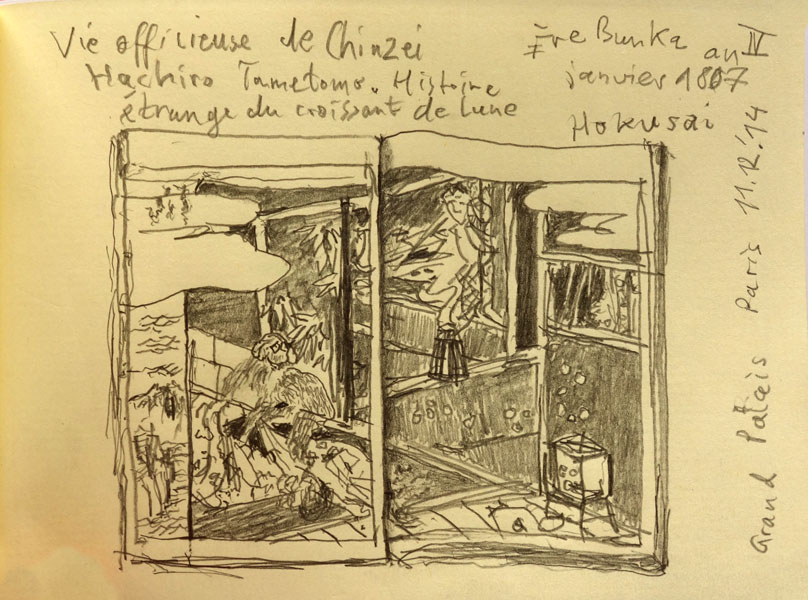 Vie officieuse de Chinzei
Hachiro Tametomo. Histoire
étrange du croissant de lune
Ère Bunka an IV
janvier 1807
Hokusai
Grand Palais Paris 11.12.'14